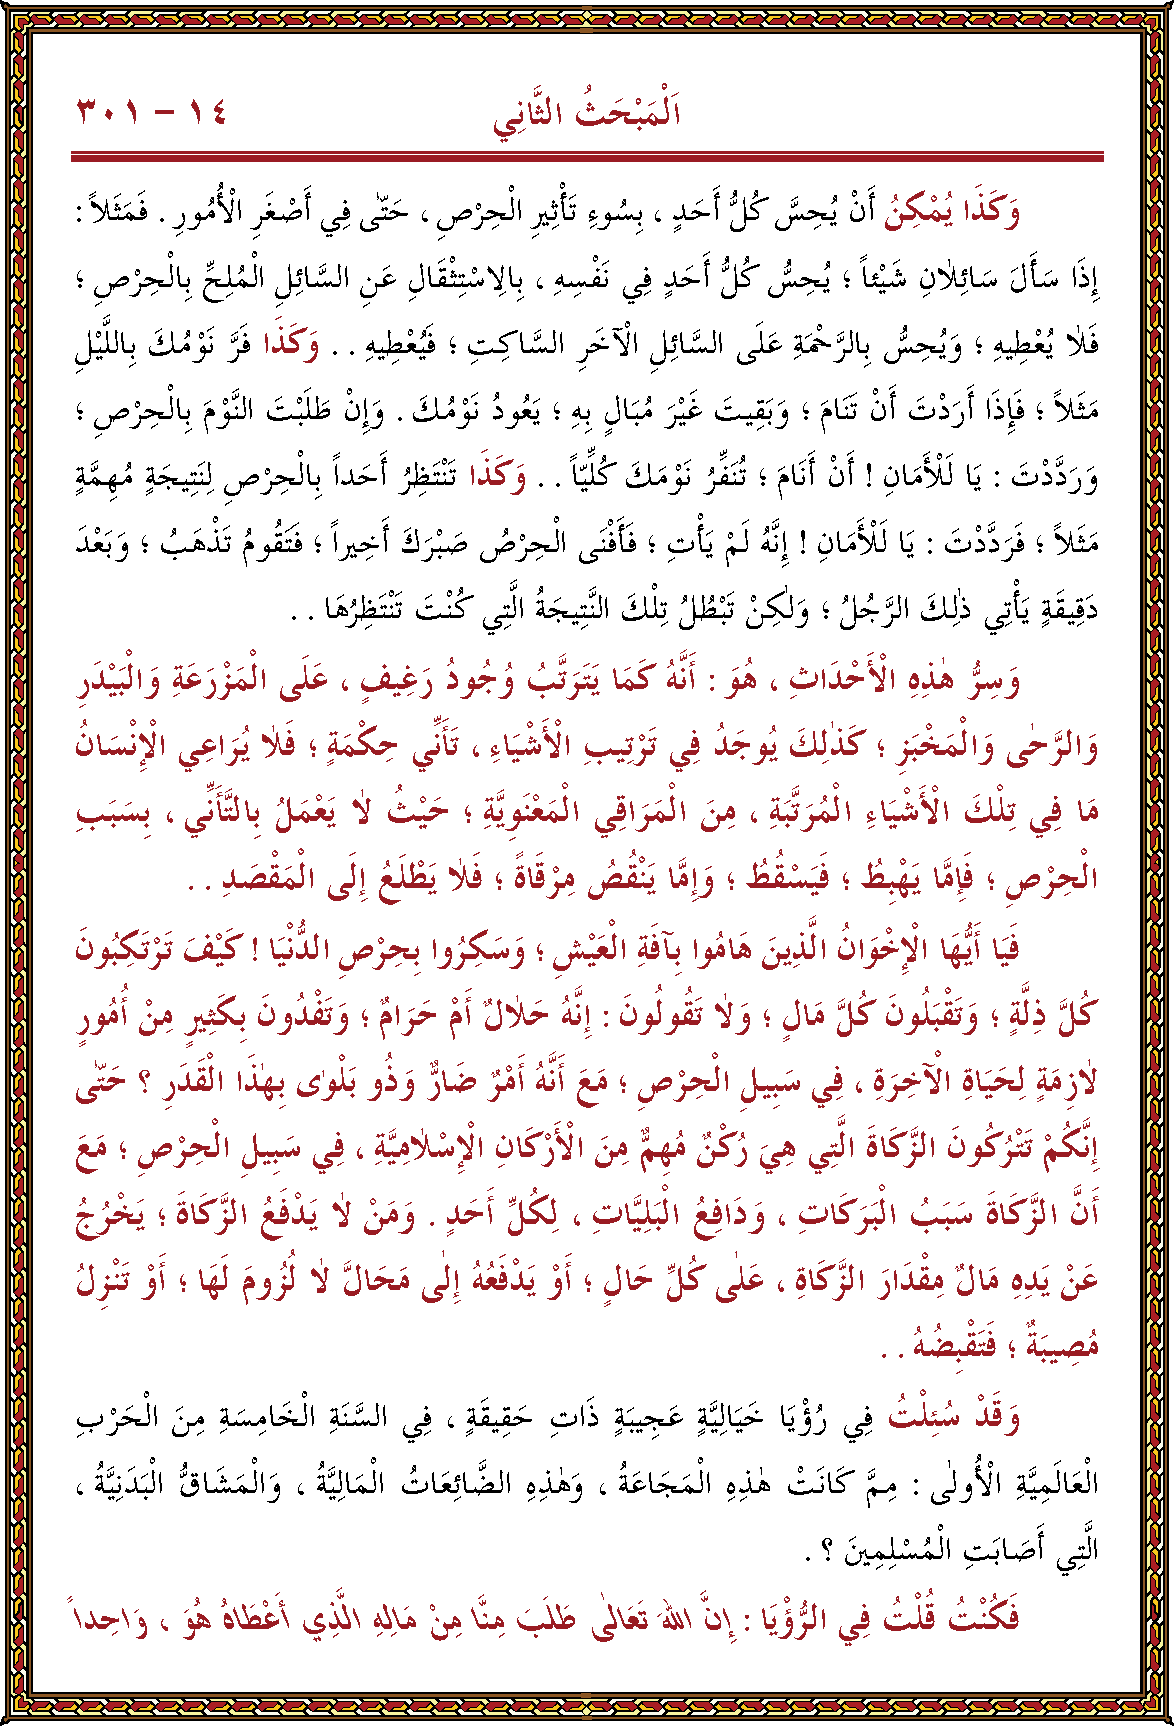 اَلْمَبْحَثُ الثَّانِي ١٤ – ٣٠١
وَكَذَا يُمْكِنُ أَنْ يُحِسَّ كُلُّ أَحَدٍ ، بِسُوءِ تَأْثِيرِ الْحِرْصِ ، حَتّٰى فِي أَصْغَرِ الْأُمُورِ . فَمَثَلاً :
إِذَا سَأَلَ سَائِلاٰنِ شَيْئاً ؛ يُحِسُّ كُلُّ أَحَدٍ فِي نَفْسِهِ ، بِالاِسْتِثْقَالِ عَنِ السَّائِلِ الْمُلِحِّ بِالْحِرْصِ ؛
فَلاٰ يُعْطِيهِ ؛ وَيُحِسُّ بِالرَّحْمَةِ عَلَى السَّائِلِ الْآخَرِ السَّاكِتِ ؛ فَيُعْطِيهِ . . وَكَذَا فَرَّ نَوْمُكَ بِاللَّيْلِ
مَثَلاً ؛ فَإِذَا أَرَدْتَ أَنْ تَنَامَ ؛ وَبَقِيتَ غَيْرَ مُبَالٍ بِهِ ؛ يَعُودُ نَوْمُكَ . وَإِنْ طَلَبْتَ النَّوْمَ بِالْحِرْصِ ؛
وَرَدَّدْتَ : يَا لَلْأَمَانِ ! أَنْ أَنَامَ ؛ تُنَفِّرُ نَوْمَكَ كُلِّيّاً . . وَكَذَا تَنْتَظِرُ أَحَداً بِالْحِرْصِ لِنَتِيجَةٍ مُهِمَّةٍ
مَثَلاً ؛ فَرَدَّدْتَ : يَا لَلْأَمَانِ ! إِنَّهُ لَمْ يَأْتِ ؛ فَأَفْنَى الْحِرْصُ صَبْرَكَ أَخِيراً ؛ فَتَقُومُ تَذْهَبُ ؛ وَبَعْدَ
دَقِيقَةٍ يَأْتِي ذٰلِكَ الرَّجُلُ ؛ وَلٰكِنْ تَبْطُلُ تِلْكَ النَّتِيجَةُ الَّتِي كُنْتَ تَنْتَظِرُهَا . .
وَسِرُّ هٰذِهِ الْأَحْدَاثِ ، هُوَ : أَنَّهُ كَمَا يَتَرَتَّبُ وُجُودُ رَغِيفٍ ، عَلَى الْمَزْرَعَةِ وَالْبَيْدَرِ
وَالرَّحٰى وَالْمَخْبَزِ ؛ كَذٰلِكَ يُوجَدُ فِي تَرْتِيبِ الْأَشْيَاءِ ، تَأَنِّي حِكْمَةٍ ؛ فَلاٰ يُرَاعِي الْإِنْسَانُ
مَا فِي تِلْكَ الْأَشْيَاءِ الْمُرَتَّبَةِ ، مِنَ الْمَرَاقِي الْمَعْنَوِيَّةِ ؛ حَيْثُ لاٰ يَعْمَلُ بِالتَّأَنِّي ، بِسَبَبِ
الْحِرْصِ ؛ فَإِمَّا يَهْبِطُ ؛ فَيَسْقُطُ ؛ وَإِمَّا يَنْقُصُ مِرْقَاةً ؛ فَلاٰ يَطْلَعُ إِلَى الْمَقْصَدِ . .
فَيَا أَيُّهَا الْإِخْوَانُ الَّذِينَ هَامُوا بِآفَةِ الْعَيْشِ ؛ وَسَكِرُوا بِحِرْصِ الدُّنْيَا ! كَيْفَ تَرْتَكِبُونَ
كُلَّ ذِلَّةٍ ؛ وَتَقْبَلُونَ كُلَّ مَالٍ ؛ وَلاٰ تَقُولُونَ : إِنَّهُ حَلاٰلٌ أَمْ حَرَامٌ ؛ وَتَفْدُونَ بِكَثِيرٍ مِنْ أُمُورٍ
لاٰزِمَةٍ لِحَيَاةِ الْآخِرَةِ ، فِي سَبِيلِ الْحِرْصِ ؛ مَعَ أَنَّهُ أَمْرٌ ضَارٌّ وَذُو بَلْوٰى بِهٰذَا الْقَدَرِ ؟ حَتّٰى
إِنَّكُمْ تَتْرُكُونَ الزَّكَاةَ الَّتِي هِيَ رُكْنٌ مُهِمٌّ مِنَ الْأَرْكَانِ الْإِسْلاٰمِيَّةِ ، فِي سَبِيلِ الْحِرْصِ ؛ مَعَ
أَنَّ الزَّكَاةَ سَبَبُ الْبَرَكَاتِ ، وَدَافِعُ الْبَلِيَّاتِ ، لِكُلِّ أَحَدٍ . وَمَنْ لاٰ يَدْفَعُ الزَّكَاةَ ؛ يَخْرُجُ
عَنْ يَدِهِ مَالٌ مِقْدَارَ الزَّكَاةِ ، عَلٰى كُلِّ حَالٍ ؛ أَوْ يَدْفَعُهُ إِلٰى مَحَالَّ لاٰ لُزُومَ لَهَا ؛ أَوْ تَنْزِلُ
مُصِيبَةٌ ؛ فَتَقْبِضُهُ . .
وَقَدْ سُئِلْتُ فِي رُؤْيَا خَيَالِيَّةٍ عَجِيبَةٍ ذَاتِ حَقِيقَةٍ ، فِي السَّنَةِ الْخَامِسَةِ مِنَ الْحَرْبِ
الْعَالَمِيَّةِ الْأُولٰى : مِمَّ كَانَتْ هٰذِهِ الْمَجَاعَةُ ، وَهٰذِهِ الضَّائِعَاتُ الْمَالِيَّةُ ، وَالْمَشَاقُّ الْبَدَنِيَّةُ ،
الَّتِي أَصَابَتِ الْمُسْلِمِينَ ؟ .
فَكُنْتُ قُلْتُ فِي الرُّؤْيَا : إِنَّ اللهَ تَعَالٰى طَلَبَ مِنَّا مِنْ مَالِهِ الَّذِي أَعْطَاهُ هُوَ ، وَاحِداً